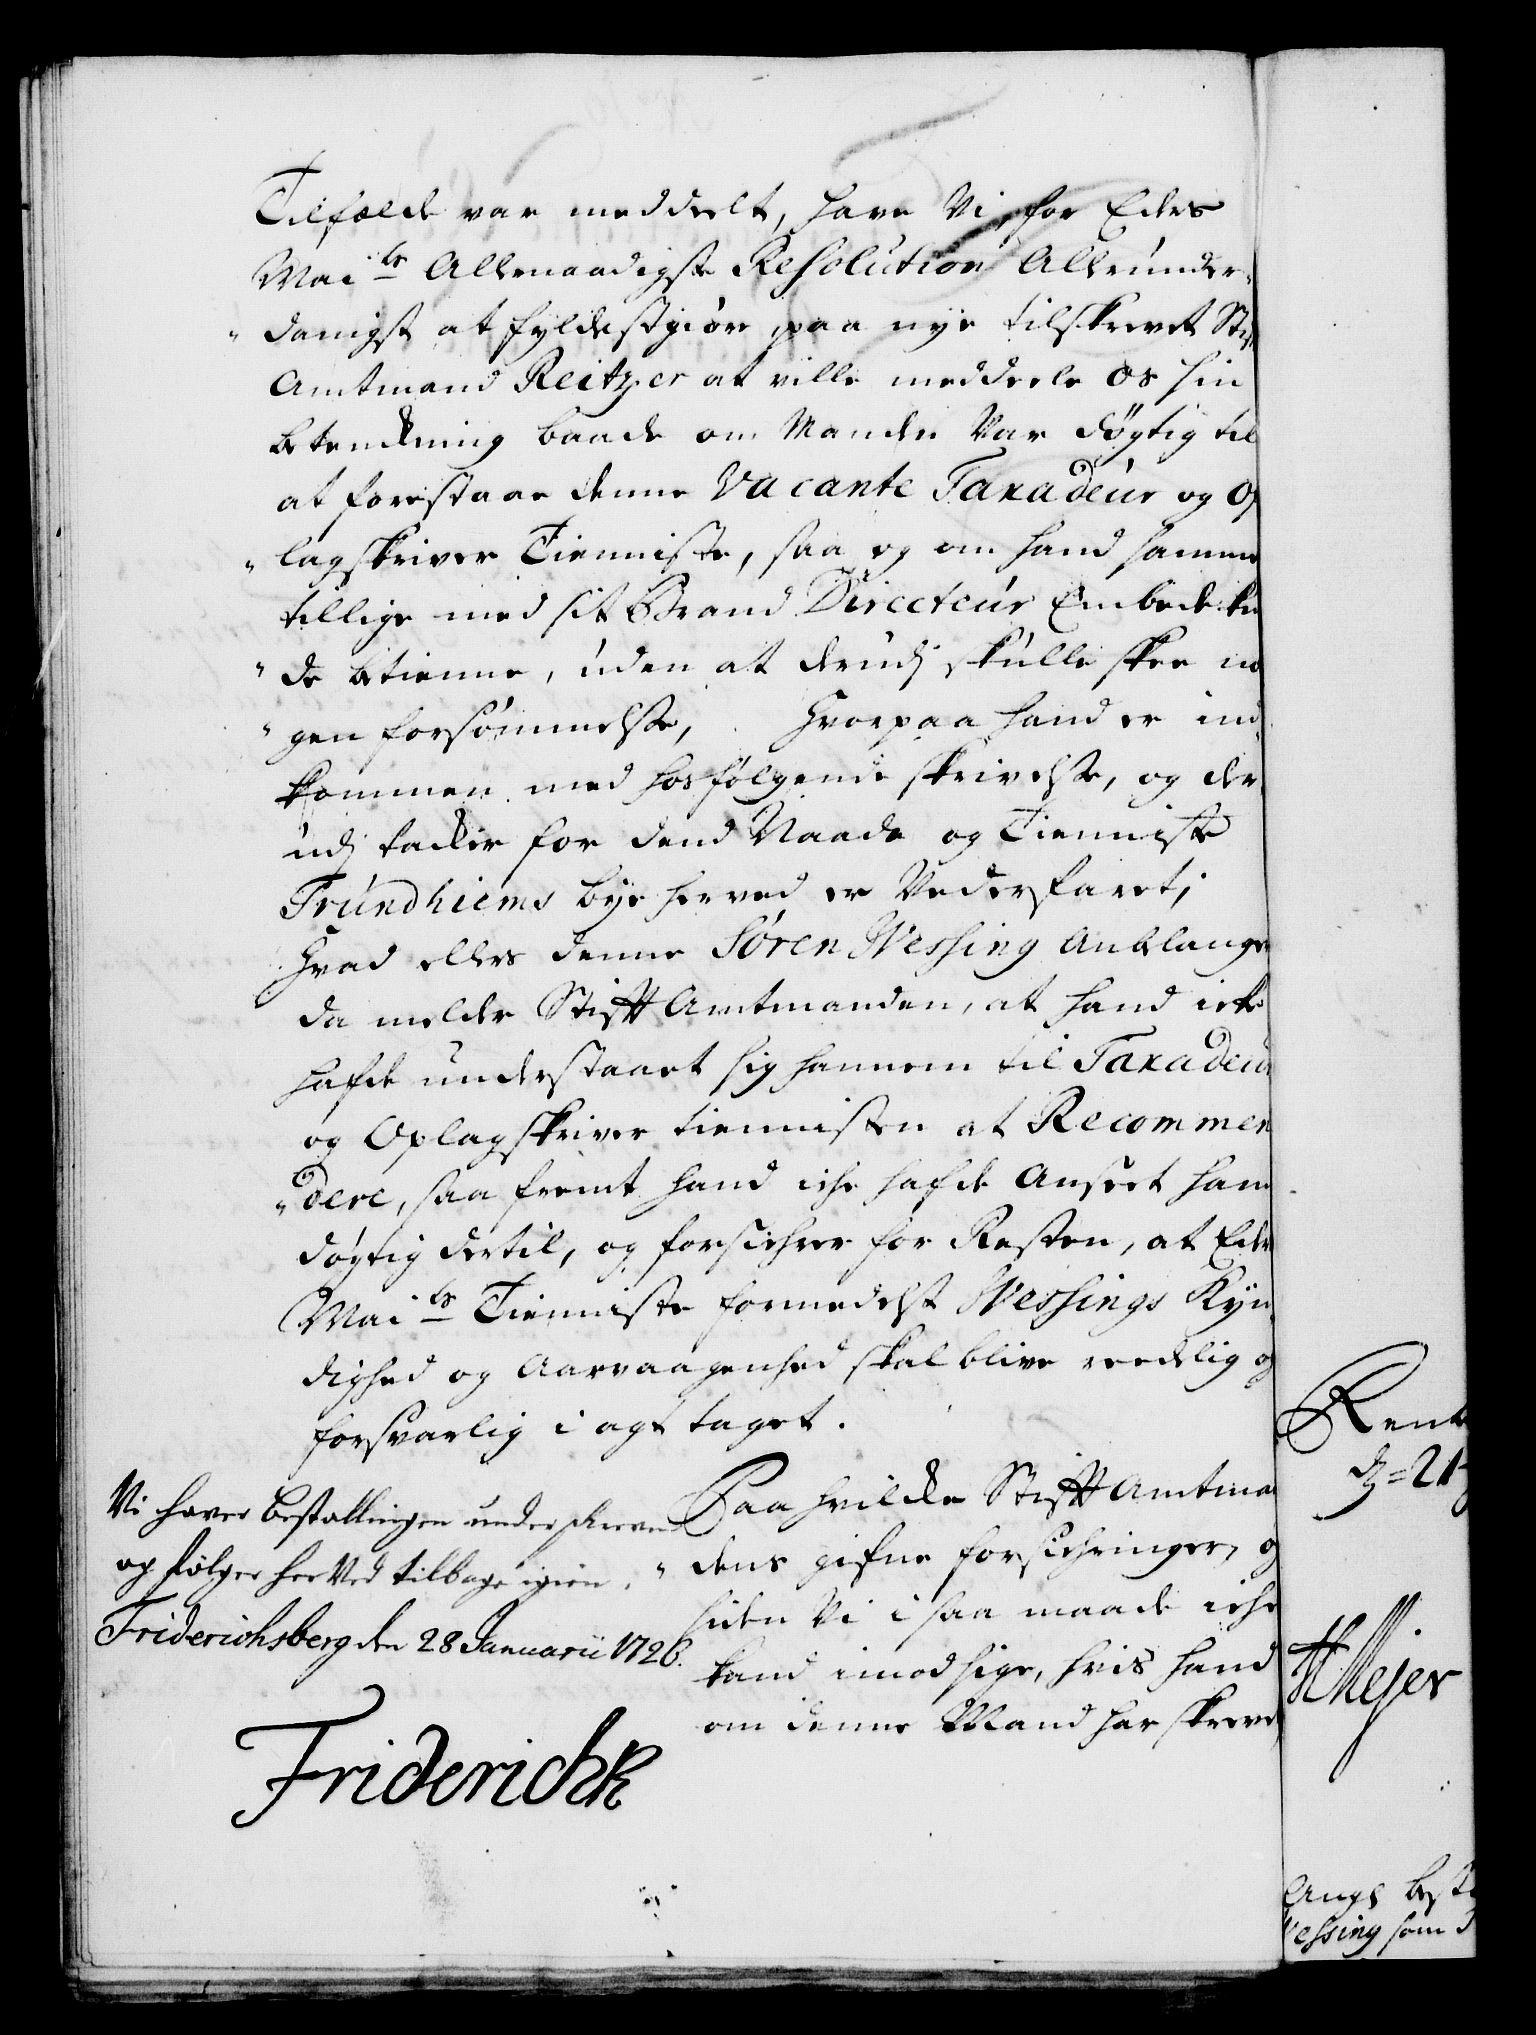 Tilfælde var meddeelt, have Vi for Eders
Mai:ts Allernaadigste Resolution Allerunder-
"danigst at fyldestgiøre paa nye tilskrevet Stift
Amtmand Reitzer at ville meddeele os sin
betenckning baade om Manden Var døgtig til
at forestaae denne Vacante Taxadeur og Op
"lagskriver Tienniste, saa og om hand samme
tillige med sit Brand Directeur Embede kun
"de betienne, uden at derudj skulle skee no
"gen forsømmelse, Hvorpaa hand er ind
kommen med hosfølgende skrivelse, og der
udj tacker for dend Naade og Tienniste
Trundhiems bye herved er Vederfaret;
Hvad ellers denne Søren Wessing Anbelanger
da melder Stifft Amtmanden, at hand icke
hafde understaaet sig hannem til Taxadeur
og Oplagskriver tiennisten at Recommen
"dere, saa fremt hand iche hafde Anseet ham
døgtig dertil, og forsichrer for Resten, at Eders
Mai:ts Tienniste formedelst Wessings Kyn
dighed og Aarvaagenhed skal blive reedelig og
forsvarlig i agt taget.
Paa hvilcke Stifft Amtman
"dens gifne forsichringer, og
siden Vi i saa maade iche
kand imodsige, hvis hand
om denne Mand har skrevet
Vi haver bestallingen underschreven
og følger her Ved tilbage igien.
Friderichsberg den 28 Januarii 1726.
Friderich R
Rent
d = 21
HMejer
Ang: best
Wessing som T